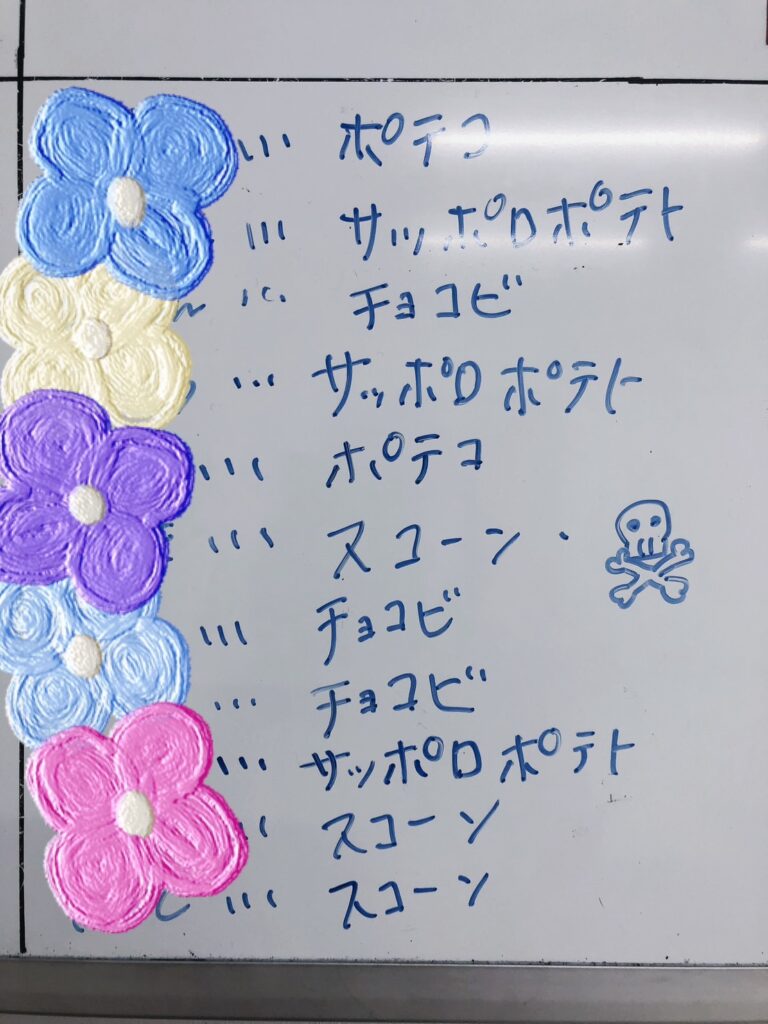 … ポテコ
… サッポロポテト
… チョコビ
… サッポロポテト
… ポテコ
… スコーン・
… チョコビ
… チョコビ
… サッポロポテト
… スコーン
… スコーン